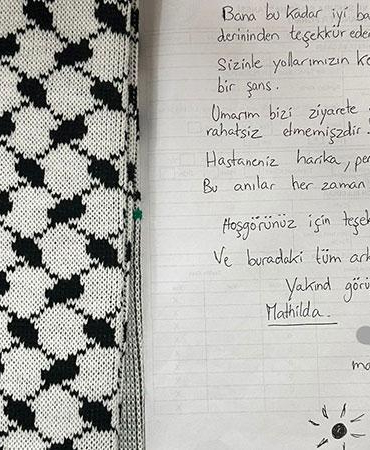 Bana bu kadar iyi ba
derininden teşekkür eder
Sizinle yollarımızın ke
bir şans.
Umarım bizi ziyarete
rahatsiz etmemişzdir.
Hastaneniz harika, per
Bu anılar her zaman
Hoşgörünüz için teşek
Ve buradaki tüm ark
Yakınd görü
Mathilda.
ma